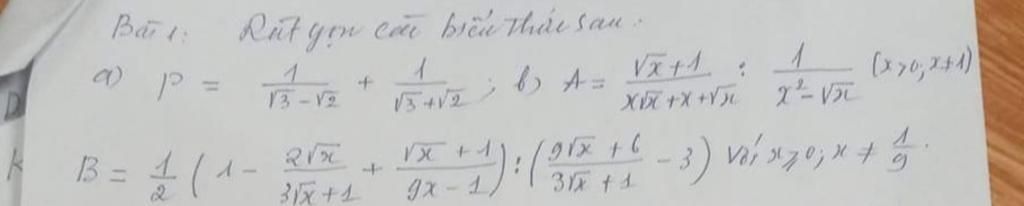 Bài 1: Rút gọn các biểu thức sau.
a) P = 1/(√3 - √2) + 1/(√3 + √2) ; b) A = (√x + 1)/(x√x + x + √x) : 1/(x² - √x) (x>0; x≠1)
B = 1/2 (1 - 2√x/(3√x + 1) + (√x + 1)/(9x - 1)) : ((9√x + 6)/(3√x + 1) - 3) với x≥0; x ≠ 1/9.